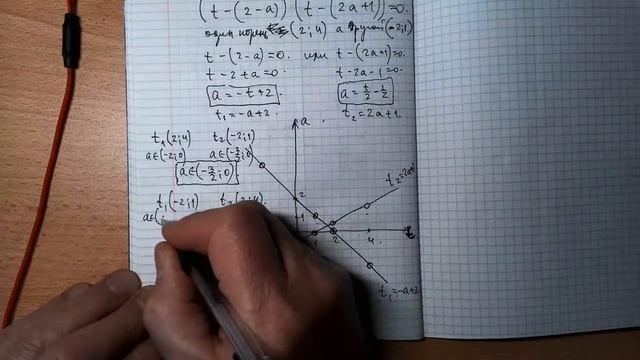 (t-(2-a))(t-(2a+1))=0.
один корень (2;4) а другой (-2;1)
t-(2-a)=0. или t-(2a+1)=0.
t-2+a=0. t-2a-1=0.
a=-t+2. a=t/2-1/2
t₁=-a+2. t₂=2a+1.
t₁(2;4) t₂(-2;1)
a∈(-2;0) a∈(-3/2;0)
a∈(-3/2;0)
t₁(-2;1) t₂(2;4).
a∈(1
a
2
1
1
2
4
t
t₂=2a+1
t₁=-a+2